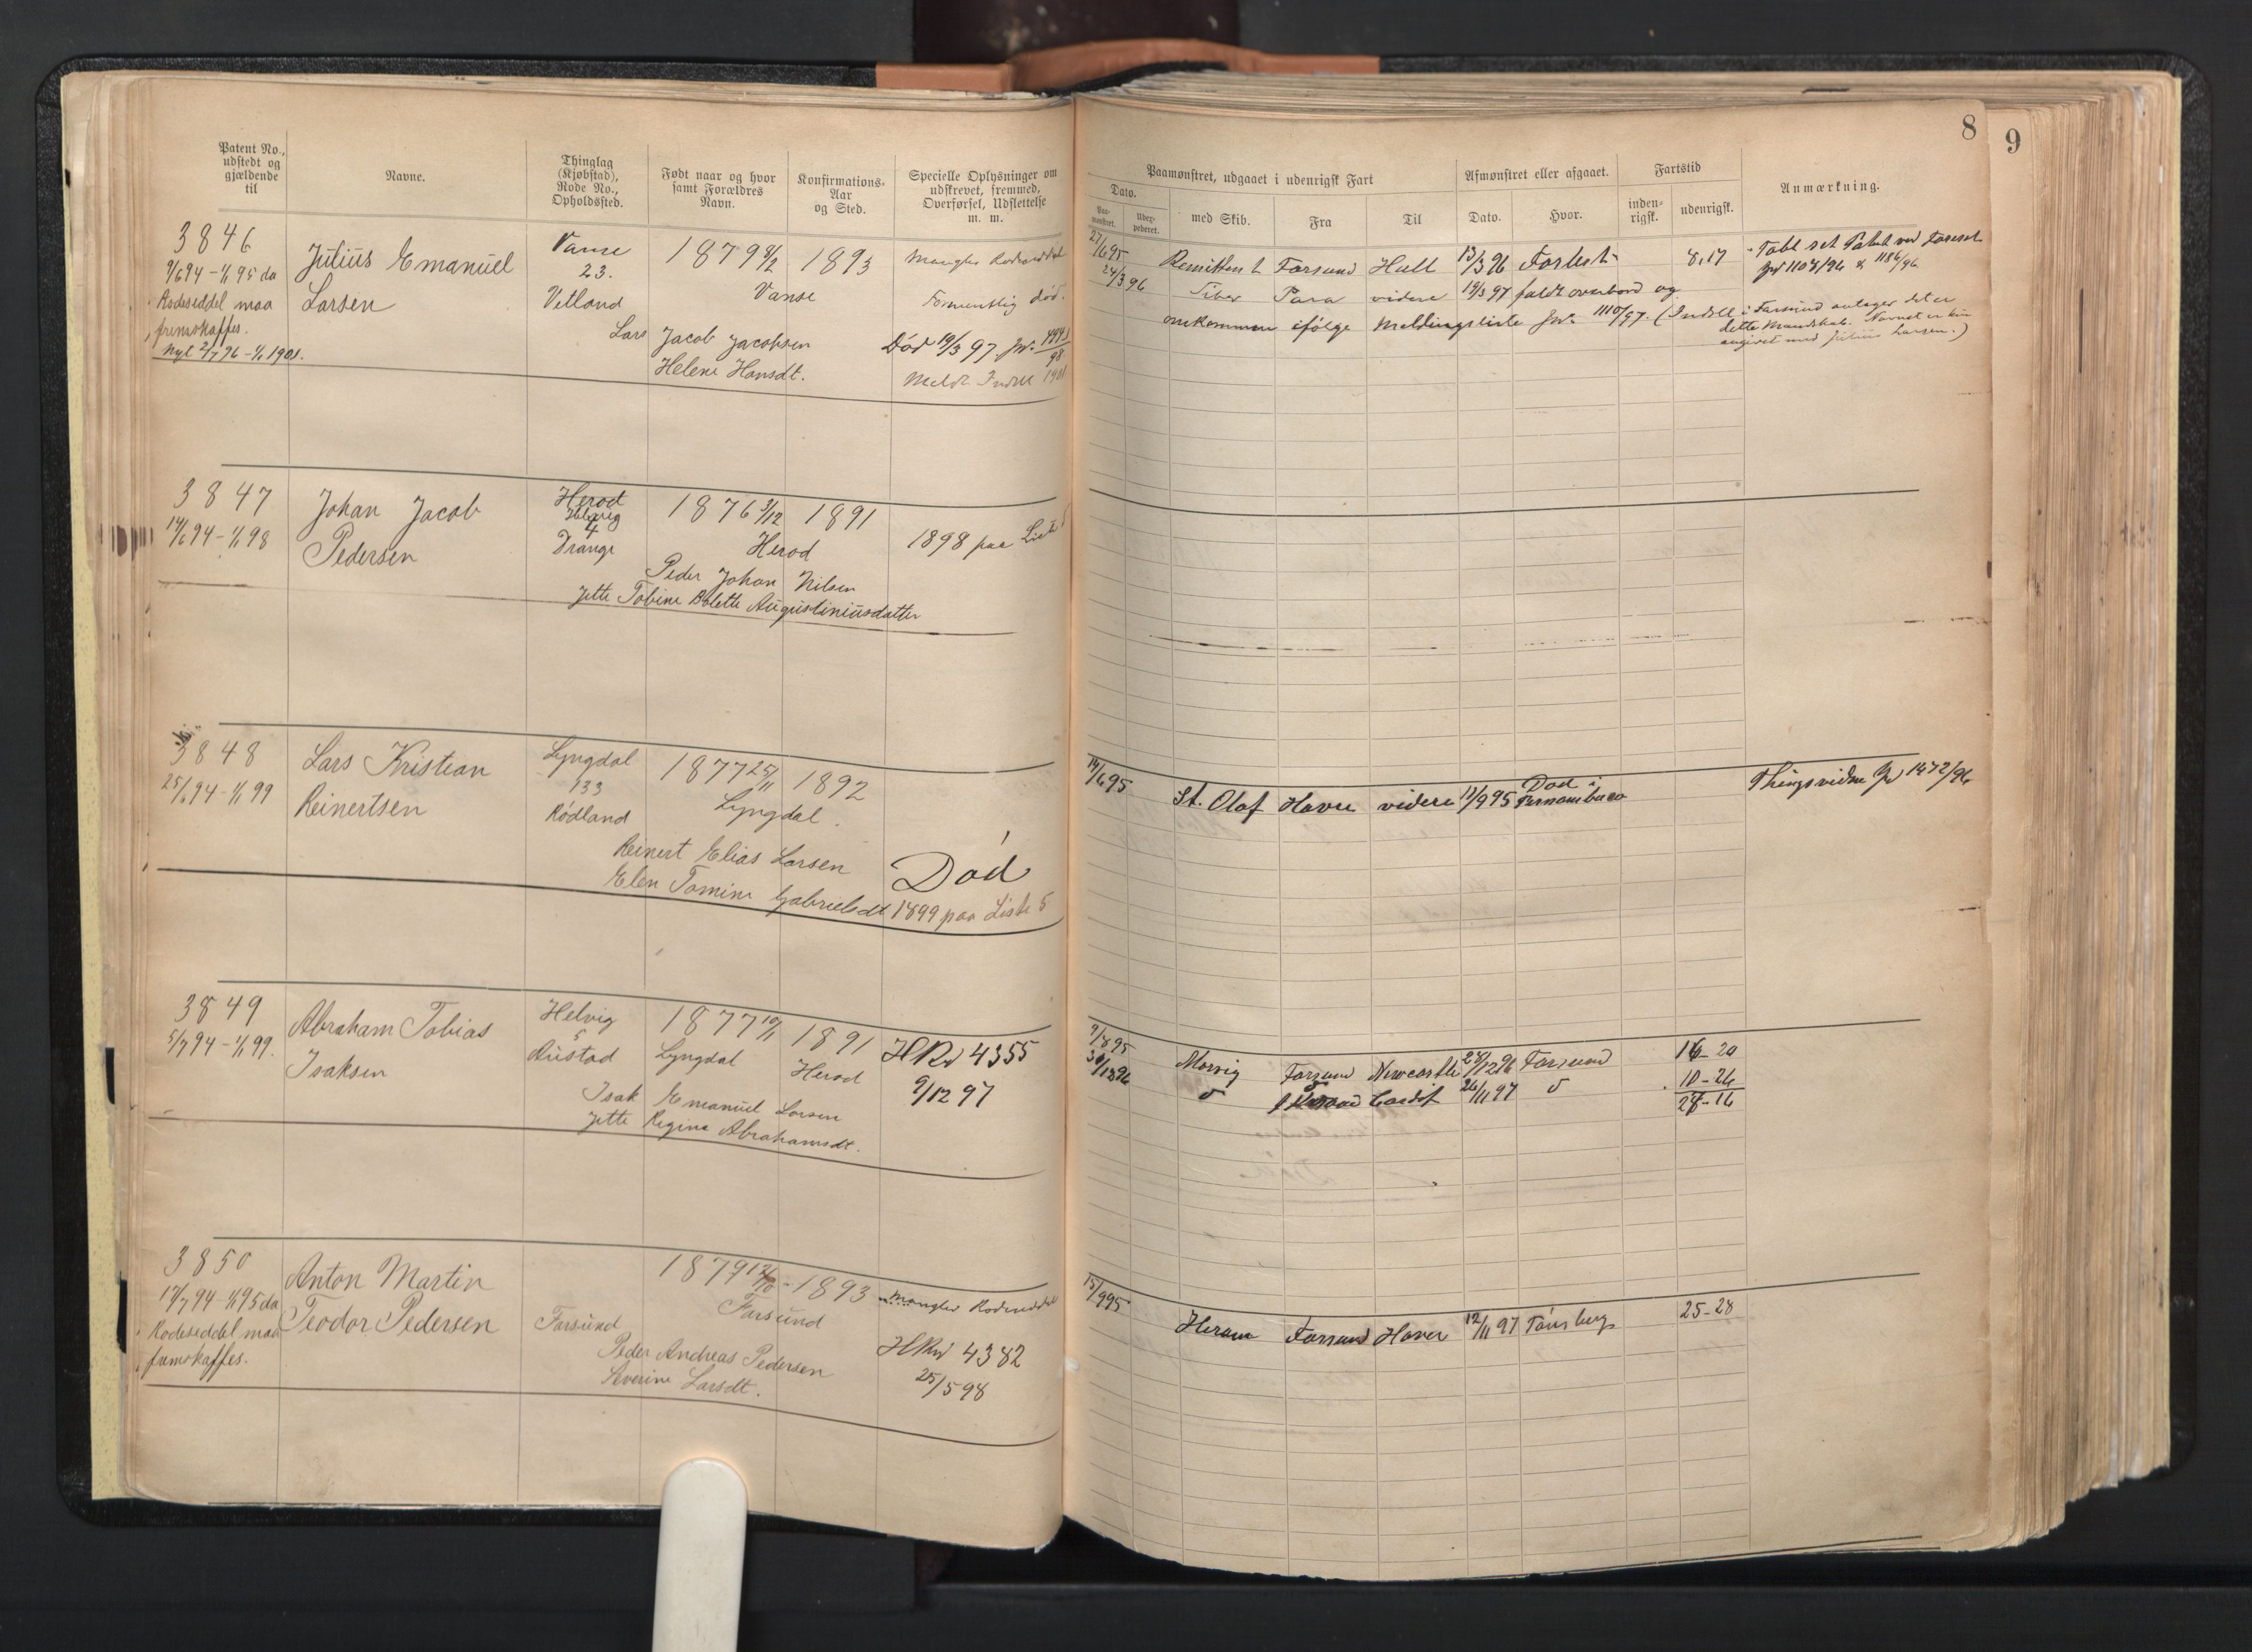 8
9
Patent No., udstedt og gjældende til
Navne.
Thinglag (Kjøbstad), Rode No., Opholdssted.
Født naar og hvor samt Forældres Navn.
Konfirmations-Aar og Sted.
Specielle Oplysninger om udskrevet, fremmed, Overførsel, Udslettelse m. m.
Paamønstret, udgaaet i udenrigsk Fart
Dato.
Paa-mønstret.
med Skib.
Fra
Til
Afmønstret eller afgaaet.
Dato.
Hvor.
Fartstid
inden-rigsk.
udenrigsk.
Anmærkning.
3846
9/6 94 - 1/1 95 da
Rodeseddel maa
fremskaffes.
Nyt 2/7 96 - 1/1 1901.
Julius Emanuel
Larsen
Vanse
23.
Vetland
1879 8/2
Vanse
1893
Lars Jacob Jacobsen
Helene Hansdt.
Mangler Rodeseddel
Formentlig død.
Død 19/3 97 Jr. 4491/98
Meldt Indll 1901
27/6 95
24/3 96
Farsund Hull 13/3 96 Forlist
8,17
Para videre 19/3 97 faldt overbord og
omkommen ifølge Meldingsliste Jr. 1110/97. (Indll i Farsund antager det er
dette Mandskab. Navnet er kun
angivet med Julius Larsen.)
Tabt sit Patent ved Forliset
Jr 1108/96 & 1186/96
3847
14/6 94 - 1/1 98
Johan Jacob
Pedersen
Herod
Helvig
4
Drange
1876 3/12
Herod
1891
Peder Johan Nilsen
Jette Tobine Bolette Augustiniusdatter
1898 paa Liste
3848
25/6 94 - 1/1 99
Lars Kristian
Reinertsen
Lyngdal
133
Rødland
1877 25/11
Lyngdal
1892
Reinert Elias Larsen
Elen Tomine Gabrielsdt
Død
1899 paa Liste 5
14/6 95
St. Olaf Havre videre 11/9 95 Død i
Pernambuco
Thingsvidne Jr 1472/96
3849
5/7 94 - 1/1 99.
Abraham Tobias
Isaksen
Helvig
5
Rustad
1877 10/11
Lyngdal
1891
Herod
Isak Emanuel Larsen
Jette Regine Abrahamsdt.
HRv 4355
9/12 97
9/8 95
30/12 96
Morvig Farsund Newcastle 28/12 96 Farsund
16-20
Cardif 26/11 97
10-26
3850
17/7 94 - 1/1 95 da
Rodeseddel maa
fremskaffes.
Anton Martin
Teodor Pedersen
Farsund
1879 12/10
Farsund
1893
Peder Andreas Pedersen
Severine Larsdt.
Mangler Rodeseddel
HRv 4382
25/5 98
15/9 95
Hiram Farsund Havre 12/11 97 Tønsberg
25-28